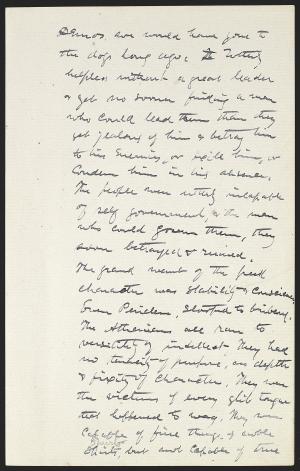 Demos, ever would have gone to
the dogs long ago. Utterly
helpless without a great leader
& yet no sooner finding a man
who could lead them than they
get jealous of him & betray him
to his Enemies, or exile him, or
Condem him in his absence.
The people were utterly incapable
of self government, & the men
who could govern them, they
soon betrayed & ruined.
The grand want of the
character was Stability & Consciency
Even Pericles, stooped to bribery.
The Athenians all ran to
versatility of intellect. They had
no tenacity of purpose, no depth
& fixity of Character. They were
the victims of every glib tongue
that happened to wag. They were
Capable of fine things & noble
Spirits, but not Capable of true